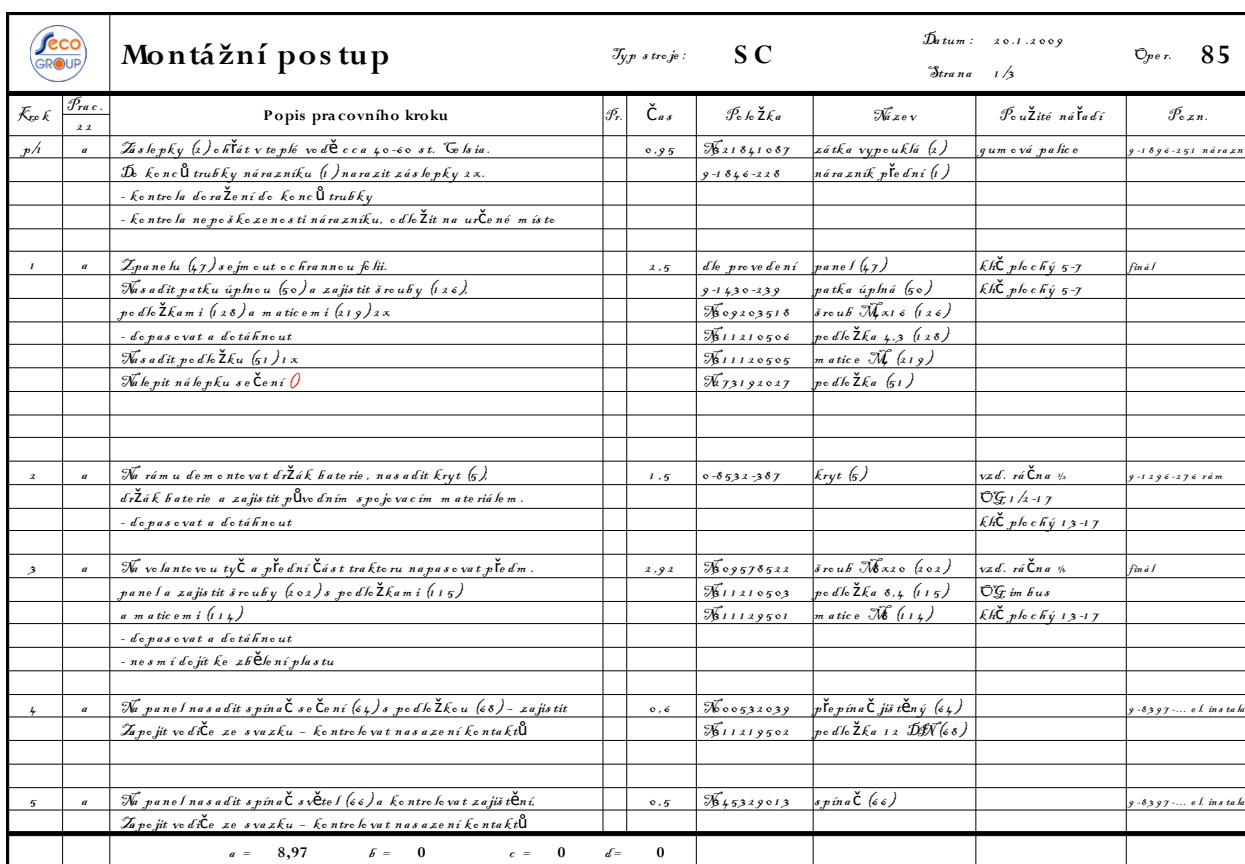 Seco GROUP
Montážní postup Typ stroje: SC Datum: 20.1.2009 Oper. 85
Strana 1/3
Krok Prac. 22 Popis pracovního kroku Pr. Čas Položka Název Použité nářadí Pozn.
p/1 a Záslepky (2) ohřát v teplé vodě cca 40-60 st. Celsia. 0,95 N321841087 zátka vypouklá (2) gumová palice 9-1896-251 nárazn
Do konců trubky nárazníku (1) narazit záslepky 2x. 9-1846-228 nárazník přední (1)
- kontrola doražení do konců trubky
- kontrola nepoškozenosti nárazníku, odložit na určené místo
1 a Z panelu (47) sejmout ochrannou folii. 2,5 dle provedení panel (47) klíč plochý 5-7 finál
Nasadit patku úplnou (50) a zajistit šrouby (126), 9-1430-239 patka úplná (50) klíč plochý 5-7
podložkami (128) a maticemi (219) 2x N309203518 šroub M4x16 (126)
- dopasovat a dotáhnout N311210506 podložka 4,3 (128)
Nasadit podložku (51) 1x N311120505 matice M4 (219)
Nalepit nálepku sečení O N273192027 podložka (51)
2 a Na rámu demontovat držák baterie, nasadit kryt (5), 1,5 0-8532-387 kryt (5) vzd. ráčna 1/2 9-1296-276 rám
držák baterie a zajistit původním spojovacím materiálem. OG 1/2-17
- dopasovat a dotáhnout klíč plochý 13-17
3 a Na volantovou tyč a přední část traktoru napasovat předm. 2,92 N309578522 šroub M8x20 (202) vzd. ráčna 1/4 finál
panel a zajistit šrouby (202) s podložkami (115) N311210503 podložka 8,4 (115) OG imbus
a maticemi (114) N311129501 matice M8 (114) klíč plochý 13-17
- dopasovat a dotáhnout
- nesmí dojít ke zbělení plastu
4 a Na panel nasadit spínač sečení (64) s podložkou (68) - zajistit 0,6 N600532039 přepínač jištěný (64) 9-8397-... el. instala
Zapojit vodiče ze svazku - kontrolovat nasazení kontaktů N311219502 podložka 12 DIN (68)
5 a Na panel nasadit spínač světel (66) a kontrolovat zajištění, 0,5 N345329013 spínač (66) 9-8397-... el. instala
Zapojit vodiče ze svazku - kontrolovat nasazení kontaktů
a = 8,97 b = 0 c = 0 d= 0